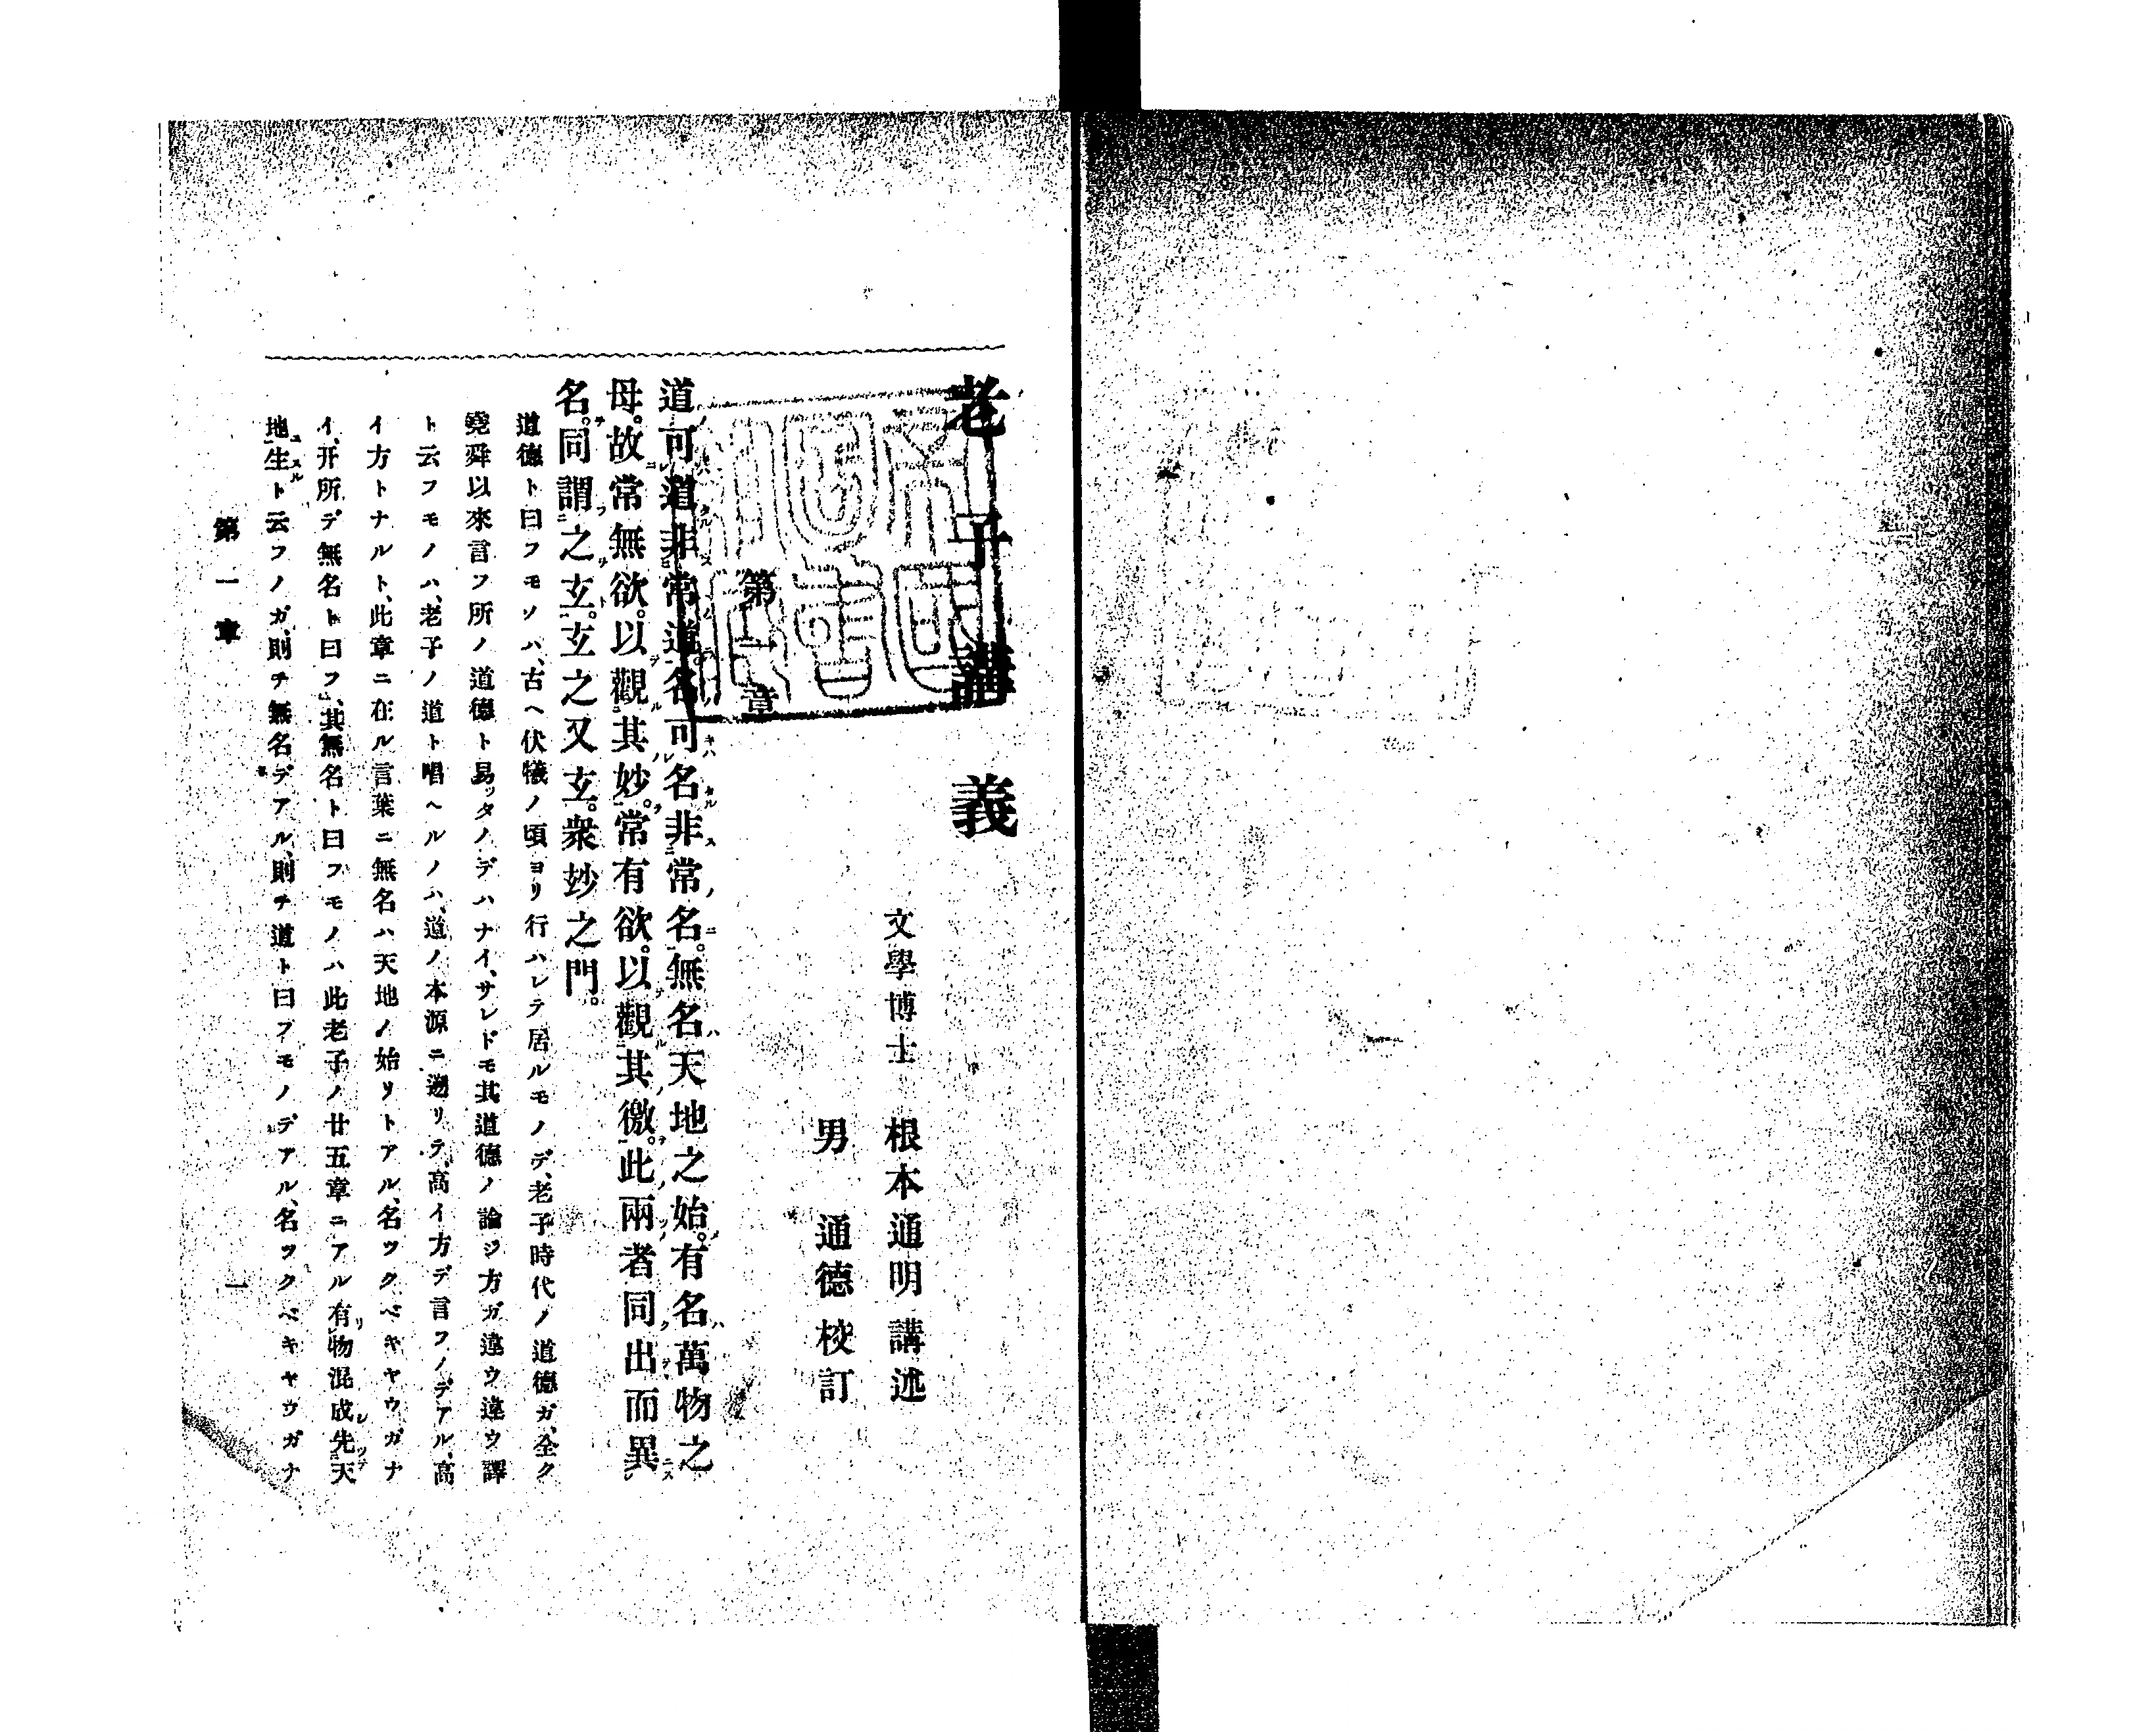 老子講義
文學博士 根本通明講述
男 通德校訂
第一章
道可道非常道。名可名非常名。無名天地之始。有名萬物之
母。故常無欲。以觀其妙。常有欲。以觀其徼。此兩者同出而異
名。同謂之玄。玄之又玄。衆玅之門。
道德ト曰フモソハ、古ヘ伏犠ノ頃ヨリ行ハレテ居ルモノデ、老子時代ノ道德ガ、全ク
堯舜以來言フ所ノ道德ト易ッタノデハナイ、サレドモ其道德ノ論ジ方ガ違ウ違ウ譯
ト云フモノハ、老子ノ道ト唱ヘルノハ、道ノ本源ニ遡リテ、高イ方デ言フノデアル、高
イ方トナルト、此章ニ在ル言葉ニ無名ハ天地ノ始リトアル、名ヅクベキヤウガナ
イ、开所デ無名ト曰フ、其無名ト曰フモノハ此老子ノ廿五章ニアル有物混成先天
地生ト云フノガ、則チ無名デアル、則チ道ト曰フモノデアル、名ヅクベキヤウガナ
第一章
一